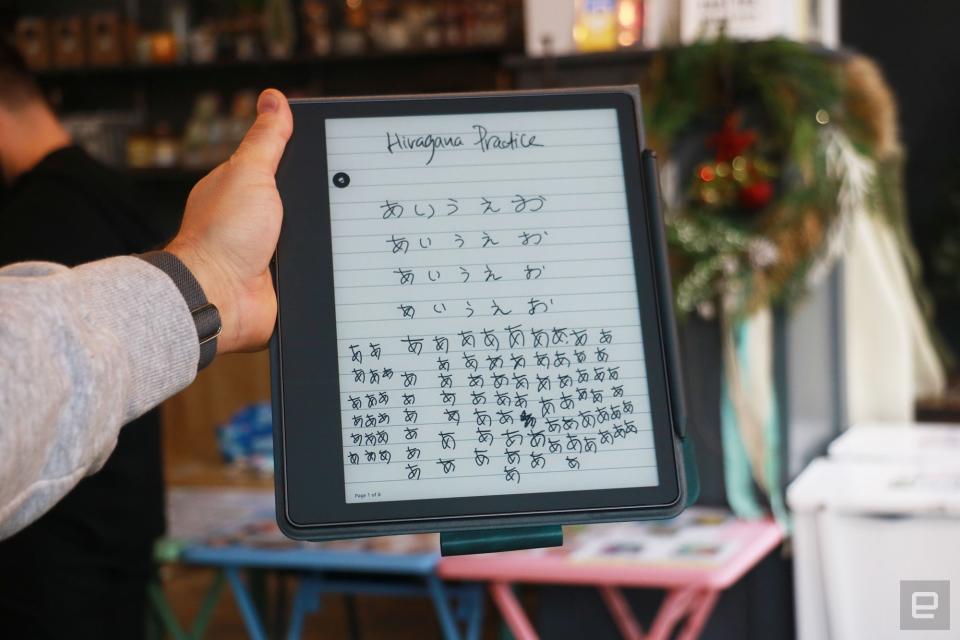 Hiragana Practice
あ い う え お
あ い う え お
あ い う え お
あ い う え お
あ あ あ あ あ あ あ あ あ あ あ
あ あ あ あ あ あ あ あ あ あ あ
あ あ あ あ あ あ あ あ あ あ
あ あ あ あ あ あ あ あ あ あ あ あ
あ あ あ あ あ あ あ あ あ あ あ あ
あ あ あ あ あ あ あ あ あ あ あ あ
あ あ あ あ あ あ あ あ あ
あ あ
Page 1 of 8
e